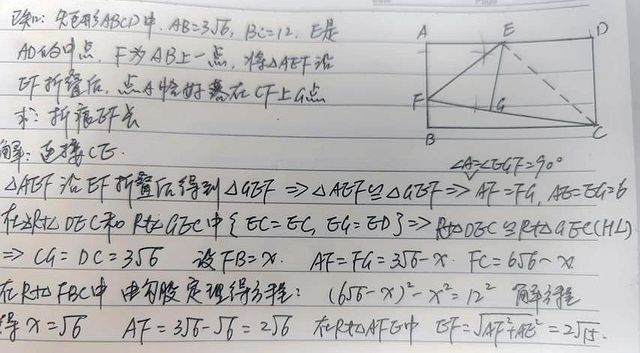 已知: 矩形ABCD中, AB=3√6, BC=12, E是
AD的中点, F为AB上一点, 将△AEF沿
EF折叠后, 点A恰好落在CF上G点
求: 折痕EF长
解: 连接CE.
A E D
F G
B C
∠A=∠EGF=90°
△AEF沿EF折叠后得到△GEF => △AEF≌△GEF => AF=FG, AE=EG=6
在Rt△DEC和Rt△GEC中{EC=EC, EG=ED} => Rt△DEC≌Rt△GEC(HL)
=> CG=DC=3√6 设FB=x. AF=FG=3√6-x. FC=6√6-x
在Rt△FBC中 由勾股定理得方程: (6√6-x)²-x²=12² 解方程
得x=√6 AF=3√6-√6=2√6 在Rt△AFE中 EF=√AF²+AE²=2√15.